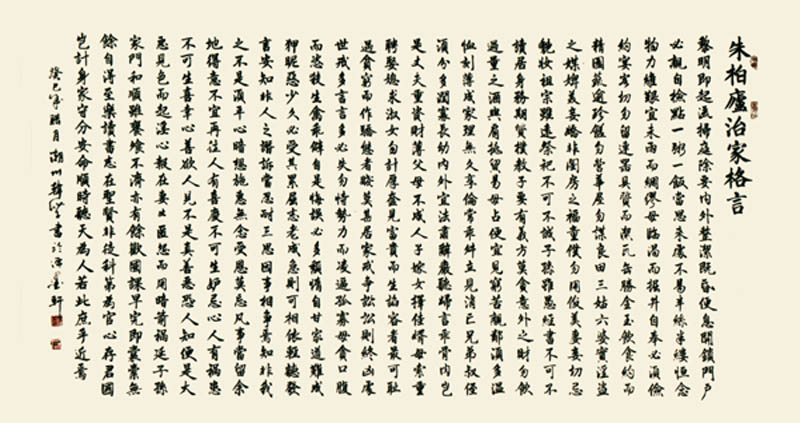 朱柏廬治家格言
黎明即起灑掃庭除要內外整潔既昏便息關鎖門戶
必親自檢點一粥一飯當思來處不易半絲半縷恒念
物力維艱宜未雨而綢繆毋臨渴而掘井自奉必須儉
約宴客切勿留連器具質而潔瓦缶勝金玉飲食約而
精園蔬逾珍饈勿營華屋勿謀良田三姑六婆實淫盜
之媒婢美妾嬌非閨房之福童僕勿用俊美妻妾切忌
艷妝祖宗雖遠祭祀不可不誠子孫雖愚經書不可不
讀居身務期質樸教子要有義方莫貪意外之財勿飲
過量之酒與肩挑貿易毋占便宜見窮苦親鄰須多溫
恤刻薄成家理無久享倫常乖舛立見消亡兄弟叔侄
須分多潤寡長幼內外宜法肅辭嚴聽婦言乖骨肉豈
是丈夫重資財薄父母不成人子嫁女擇佳婿毋索重
聘娶媳求淑女勿計厚奩見富貴而生諂容者最可恥
遇貧窮而作驕態者賤莫甚居家戒爭訟訟則終凶處
世戒多言言多必失勿恃勢力而凌逼孤寡毋貪口腹
而恣殺生禽乖僻自是悔誤必多頹惰自甘家道難成
狎昵惡少久必受其累屈志老成急則可相依輕聽發
言安知非人之譖訴當忍耐三思因事相爭焉知非我
之不是須平心暗想施惠無念受恩莫忘凡事當留餘
地得意不宜再往人有喜慶不可生妒忌心人有禍患
不可生喜幸心善欲人見不是真善惡恐人知便是大
惡見色而起淫心報在妻女匿怨而用暗箭禍延子孫
家門和順雖饔飧不濟亦有餘歡國課早完即囊橐無
餘自得至樂讀書志在聖賢非徒科第為官心存君國
豈計身家守分安命順時聽天為人若此庶乎近焉
癸巳年臘月湖州韓書於墨軒